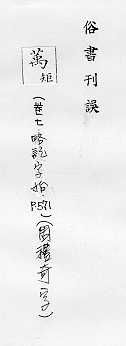 俗書刊誤
萬
矩
(卷七略記字始.P.571)(周禮奇字)